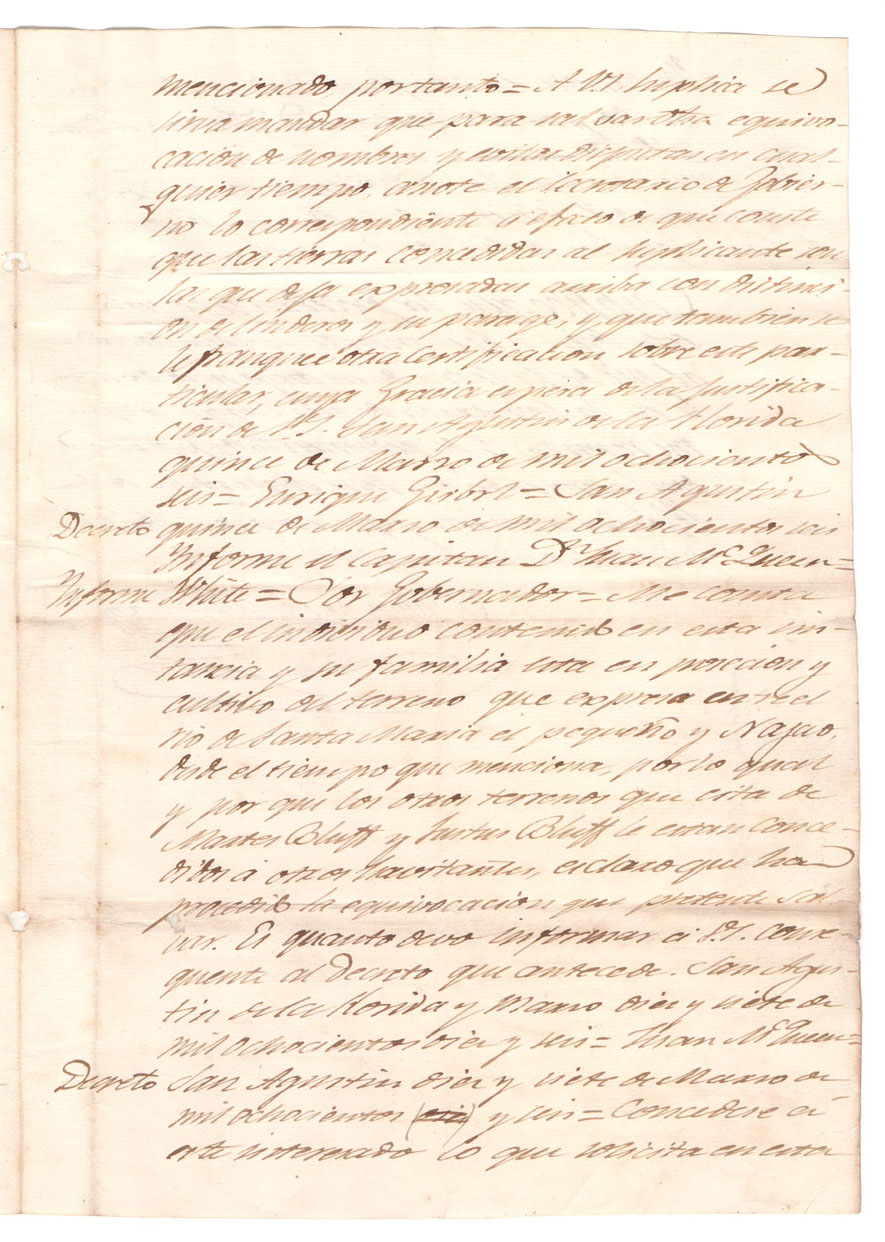 mencionado portanto = A V.S. Suplica se
sirva mandar que para salvar otra equivo-
cacion de nombres y evitar disputas en cual-
quier tiempo, anote el Secretario de Gobier-
no lo correspondiente a efecto de que conste
que las tierras concedidas al suplicante son
las que deja expresadas arriba con distinci-
on de linderos y su parage, y que tambien se
le franquee otra certificacion sobre este par-
ticular, cuya Gracia espera de la Justifica-
cion de V.S. San Agustin de la Florida
quince de Marzo de mil ochocientos
seis = Enrique = San Agustin
Decreto quince de Marzo de mil ochocientos seis
Informe el Capitan Dn. Juan McQueen =
Informe White = Sor Gobernador = Me consta
que el individuo contenido en esta ins-
tancia y su familia esta en posecion y
cultivo del terreno que expresa entre el
rio de Santa Maria el pequeño y Nazao,
desde el tiempo que menciona, por lo qual
y por que los otros terrenos que cita de
Martes Bluff y Bluff le estan conce-
didos á otros havitantes, es claro que ha
procedido la equivocacion que pretende sal-
var. Es quanto devo informar á V.S. conse-
quente al Decreto que antecede. San Agus-
tin de la Florida y Marzo diez y siete de
mil ochocientos diez y seis = Juan McQueen =
Decreto San Agustin diez y siete de Marzo de
mil ochocientos y seis = Concedese á
este interesado lo que solicita en esta